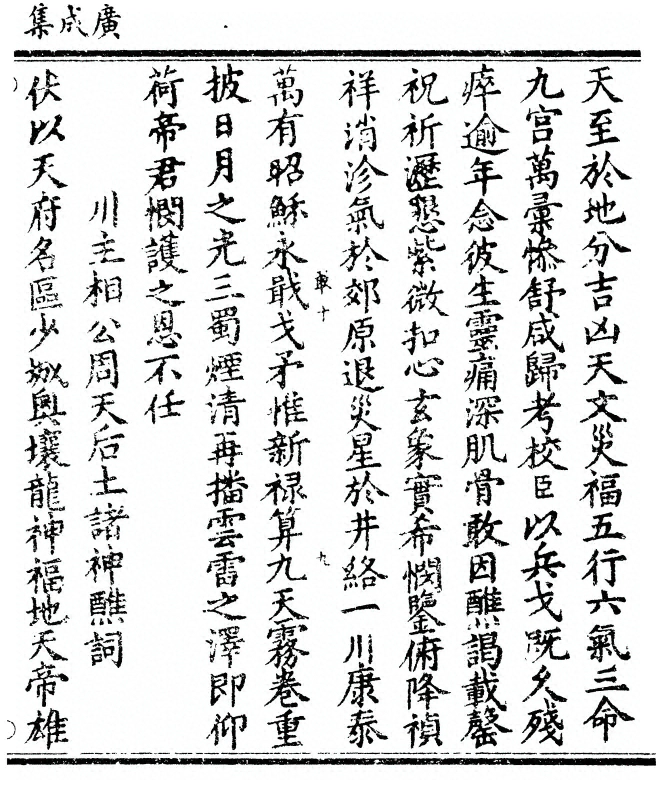 廣成集
天至於地分吉凶天文災福五行六氣三命
九宮萬彙慘舒咸歸考校臣以兵戈既久殘
瘁逾年念彼生靈痛深肌骨敢因醮謁載罄
祝祈瀝懇紫微扣心玄象實希憫鑒俯降禎
祥消沴氣於郊原退災星於井絡一川康泰
萬有昭穌永戢戈矛惟新祿算九天霧卷重
披日月之光三蜀煙清再播雲雷之澤即仰
荷帝君憫護之恩不任
川主相公周天后土諸神醮詞
伏以天府名區少城輿壤龍神福地天帝雄